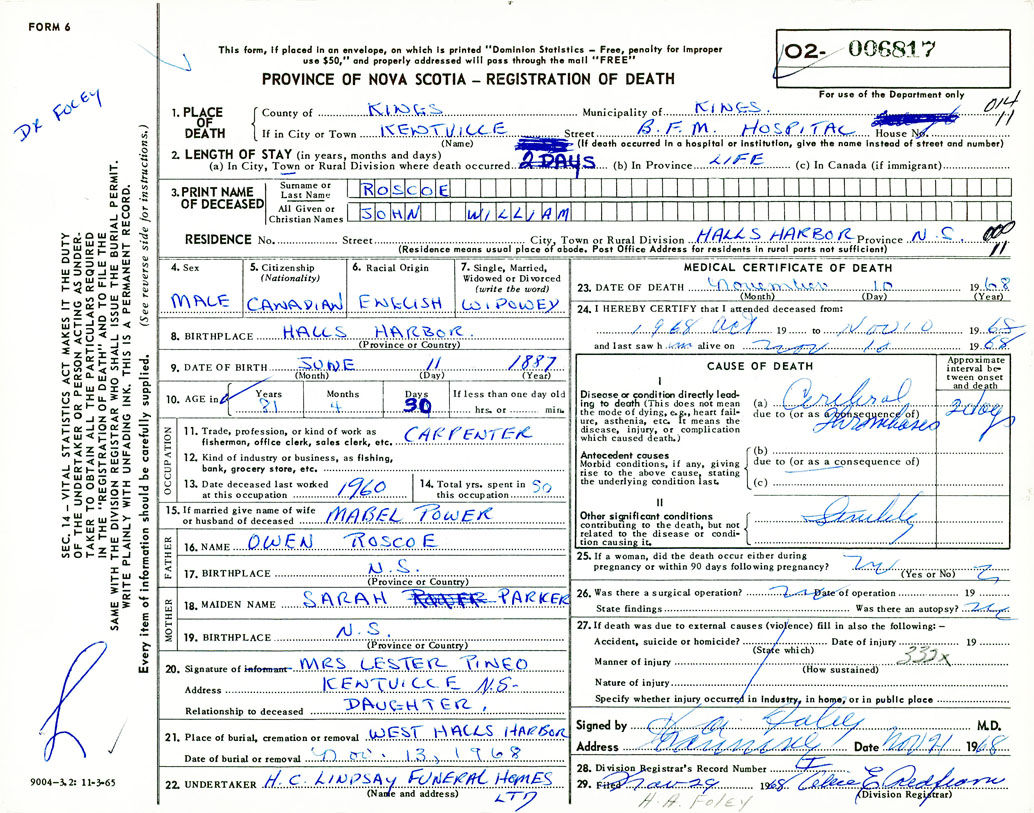 FORM 6
This form, if placed in an envelope, on which is printed "Dominion Statistics – Free, penalty for improper
use $50," and properly addressed will pass through the mail "FREE"
PROVINCE OF NOVA SCOTIA – REGISTRATION OF DEATH
02- 006817
For use of the Department only
014
11
DR FOLEY
SEC. 14 – VITAL STATISTICS ACT MAKES IT THE DUTY
OF THE UNDERTAKER OR PERSON ACTING AS UNDER-
TAKER TO OBTAIN ALL THE PARTICULARS REQUIRED
IN THE "REGISTRATION OF DEATH" AND TO FILE THE
SAME WITH THE DIVISION REGISTRAR WHO SHALL ISSUE THE BURIAL PERMIT.
WRITE PLAINLY WITH UNFADING INK. THIS IS A PERMANENT RECORD.
Every item of information should be carefully supplied. (See reverse side for instructions.)
1. PLACE OF DEATH County of KINGS Municipality of KINGS.
If in City or Town KENTVILLE Street B.F.M. HOSPITAL House No.
(Name) (If death occurred in a hospital or institution, give the name instead of street and number)
2. LENGTH OF STAY (in years, months and days)
(a) In City, Town or Rural Division where death occurred 2 DAYS (b) In Province LIFE (c) In Canada (if immigrant)
3. PRINT NAME OF DECEASED Surname or Last Name ROSCOE
All Given or Christian Names JOHN WILLIAM
RESIDENCE No. Street City, Town or Rural Division HALLS HARBOR Province N.S. 000
11
(Residence means usual place of abode. Post Office Address for residents in rural parts not sufficient)
4. Sex MALE
5. Citizenship (Nationality) CANADIAN
6. Racial Origin ENGLISH
7. Single, Married, Widowed or Divorced (write the word) WIDOWED
8. BIRTHPLACE HALLS HARBOR.
(Province or Country)
9. DATE OF BIRTH JUNE 11 1887
(Month) (Day) (Year)
10. AGE in Years 81 Months 4 Days 30 If less than one day old hrs. or min.
OCCUPATION
11. Trade, profession, or kind of work as fisherman, office clerk, sales clerk, etc. CARPENTER
12. Kind of industry or business, as fishing, bank, grocery store, etc.
13. Date deceased last worked at this occupation 1960
14. Total yrs. spent in this occupation 50
15. If married give name of wife or husband of deceased MABEL POWER
FATHER
16. NAME OWEN ROSCOE
17. BIRTHPLACE N.S.
(Province or Country)
MOTHER
18. MAIDEN NAME SARAH PARKER
19. BIRTHPLACE N.S.
(Province or Country)
20. Signature of informant MRS LESTER PINEO
Address KENTVILLE N.S.
Relationship to deceased DAUGHTER.
21. Place of burial, cremation or removal WEST HALLS HARBOR
Date of burial or removal Nov. 13, 1968
22. UNDERTAKER H.C. LINDSAY FUNERAL HOMES
(Name and address) LTD
9004-3.2: 11-3-65
MEDICAL CERTIFICATE OF DEATH
23. DATE OF DEATH November 10 1968
(Month) (Day) (Year)
24. I HEREBY CERTIFY that I attended deceased from:
1968 Oct 19 to Nov 10 1968
and last saw him alive on Nov 10 1968
CAUSE OF DEATH
Approximate interval between onset and death
I
Disease or condition directly leading to death (This does not mean the mode of dying, e.g., heart failure, asthenia, etc. It means the disease, injury, or complication which caused death.)
(a) Cerebral
due to (or as a consequence of) Thrombosis 2 days
Antecedent causes
Morbid conditions, if any, giving rise to the above cause, stating the underlying condition last.
(b)
due to (or as a consequence of)
(c)
II
Other significant conditions contributing to the death, but not related to the disease or condition causing it.
Senility
25. If a woman, did the death occur either during
pregnancy or within 90 days following pregnancy?
(Yes or No)
26. Was there a surgical operation? no Date of operation 19
State findings Was there an autopsy? no
27. If death was due to external causes (violence) fill in also the following: –
Accident, suicide or homicide? Date of injury 19
(State which)
Manner of injury 332X
(How sustained)
Nature of injury
Specify whether injury occurred in Industry, in home, or in public place
Signed by Foley M.D.
Address Canning Date Nov 21 1968
28. Division Registrar's Record Number
29. Filed Nov 29 1968
(Division Registrar)
H.A. Foley